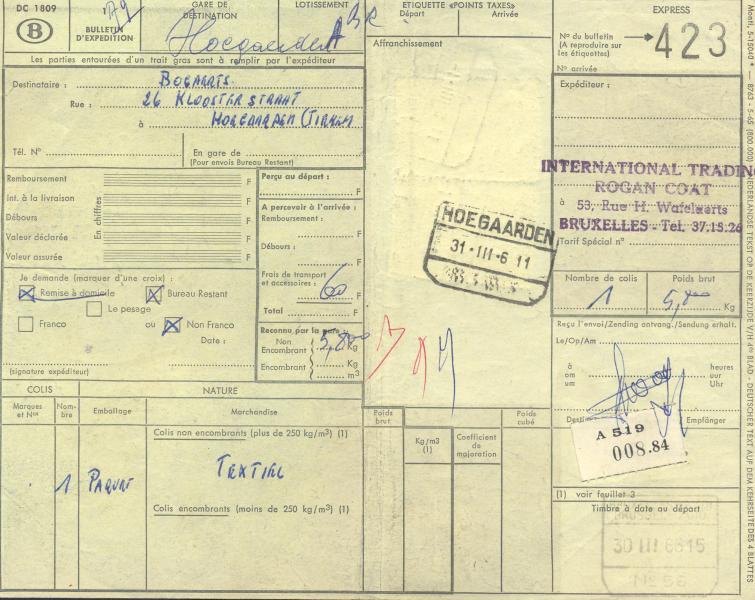 DC 1809
B
BULLETIN
D'EXPEDITION
GARE DE
DESTINATION
Hoegaarden
LOTISSEMENT
ETIQUETTE «POINTS TAXES»
Départ Arrivée
EXPRESS
No du bulletin
(A reproduire sur
les étiquettes)
423
No arrivée
Les parties entourées d'un trait gras sont à remplir par l'expéditeur
Affranchissement
Destinataire : BOGAERTS
Rue : 26 KLOOSTERSTRAAT
à HOEGAARDEN
Tél. No
En gare de
(Pour envois Bureau Restant)
Expéditeur :
INTERNATIONAL TRADING
ROGAN COAT
à 53, Rue H. Wafelaerts
BRUXELLES - Tel. 37.15.26
Tarif Spécial no
Remboursement F
Int. à la livraison F
Débours F
Valeur déclarée F
Valeur assurée F
En chiffres
Perçu au départ :
F
A percevoir à l'arrivée :
Remboursement :
F
Débours :
F
Frais de transport
et accessoires : 60 F
Total F
HOEGAARDEN
31-III-6 11
Nombre de colis
1
Poids brut
5,800 Kg
Je demande (marquer d'une croix) :
Remise à domicile
Bureau Restant
Le pesage
Franco
ou Non Franco
Date :
(signature expéditeur)
Reconnu par la gare :
Non
Encombrant 5,800 Kg
Encombrant Kg
m3
Reçu l'envoi/Zending ontvang./Sendung erhalt.
Le/Op/Am
à
om
um
heures
uur
Uhr
Empfänger
A 519
008.84
COLIS
NATURE
Marques
et Nos
Nom-
bre
Emballage
Marchandise
Poids
brut
Kg/m3
(1)
Coefficient
de
majoration
Poids
cubé
Colis non encombrants (plus de 250 kg/m3) (1)
1 PAQUET TEXTIEL
Colis encombrants (moins de 250 kg/m3) (1)
(1) voir feuillet 3
Timbre à date au départ
30 III 6615
No 56